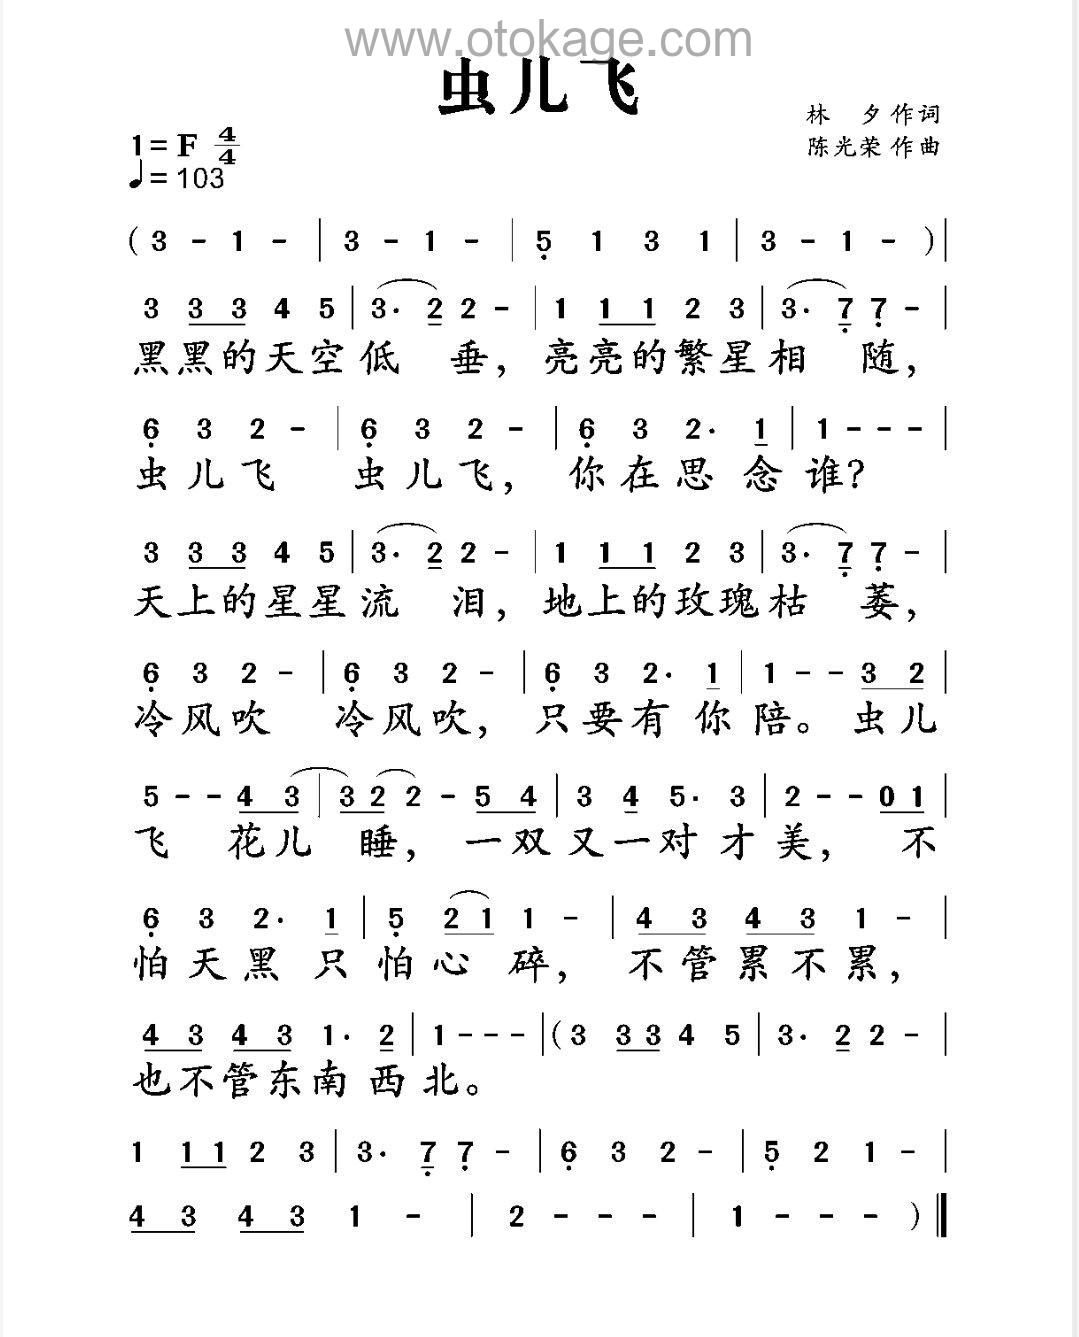 www.otokage.com
虫儿飞
林 夕 作词
1= F 4/4
陈光荣 作曲
♩= 103
( 3 - 1 - | 3 - 1 - | 5̣ 1 3 1 | 3 - 1 - ) |
3 3 3 4 5 | 3· 2 2 - | 1 1 1 2 3 | 3· 7̣ 7̣ - |
黑黑的天空低 垂, 亮亮的繁星相 随,
6̣ 3 2 - | 6̣ 3 2 - | 6̣ 3 2· 1 | 1 - - - |
虫儿飞 虫儿飞, 你在思 念谁?
3 3 3 4 5 | 3· 2 2 - | 1 1 1 2 3 | 3· 7̣ 7̣ - |
天上的星星流 泪, 地上的玫瑰枯 萎,
6̣ 3 2 - | 6̣ 3 2 - | 6̣ 3 2· 1 | 1 - - 3 2 |
冷风吹 冷风吹, 只要有 你陪。 虫儿
5 - - 4 3 | 3 2 2 - 5 4 | 3 4 5· 3 | 2 - - 0 1 |
飞 花儿 睡, 一双又一对 才美, 不
6̣ 3 2· 1 | 5̣ 2 1 1 - | 4 3 4 3 1 - |
怕天黑 只怕心 碎, 不管累不累,
4 3 4 3 1· 2 | 1 - - - | ( 3 3 3 4 5 | 3· 2 2 - |
也不管东南西北。
1 1 1 2 3 | 3· 7̣ 7̣ - | 6̣ 3 2 - | 5̣ 2 1 - |
4 3 4 3 1 - | 2 - - - | 1 - - - ) ‖